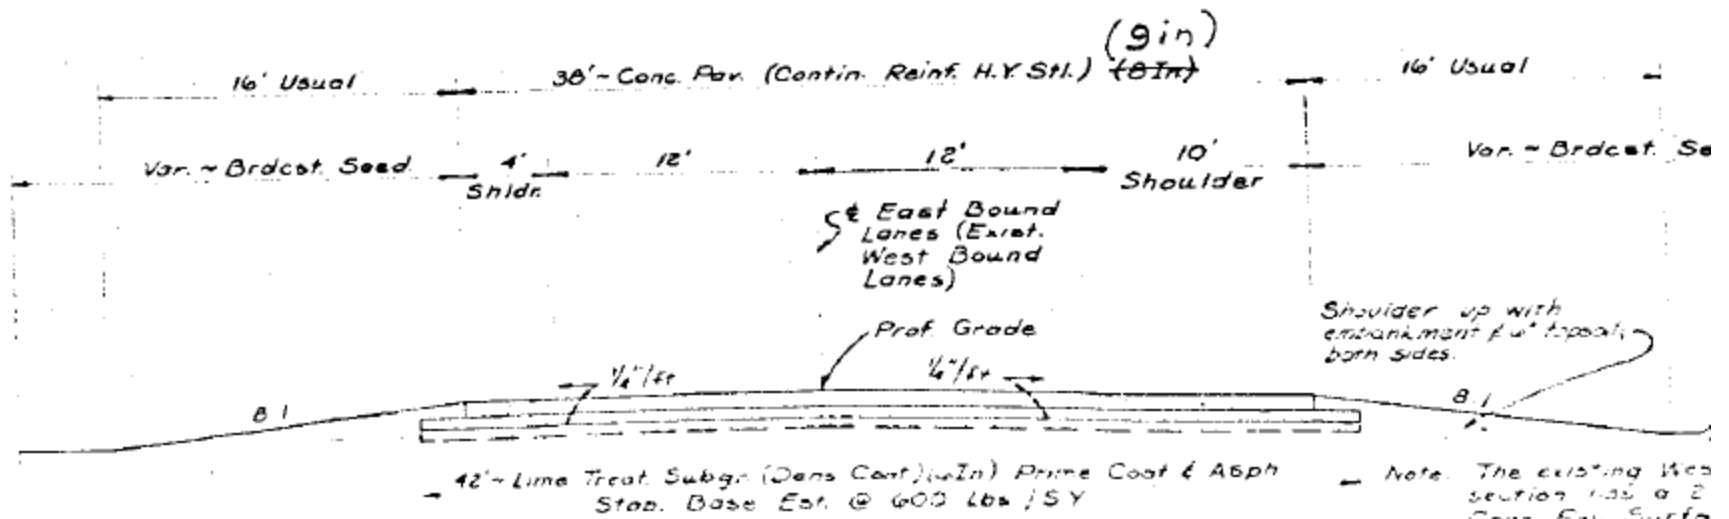 (9in)
16' Usual
38' ~ Conc. Pav. (Contin. Reinf. H.Y. Stl.) (8In)
16' Usual
Var. ~ Brdcst. Seed.
4'
Shldr.
12'
12'
10'
Shoulder
Var. ~ Brdcst. Se
℄ East Bound
Lanes (Exist.
West Bound
Lanes)
Prof. Grade
Shoulder up with
embankment & topsoil,
both sides.
1/4"/ft
1/4"/ft
8:1
8:1
42' ~ Lime Treat. Subgr. (Dens Cont) Prime Coat & Asph
Stab. Base Est. @ 600 Lbs / SY
Note. The existing Wes
section a 2
Conc.